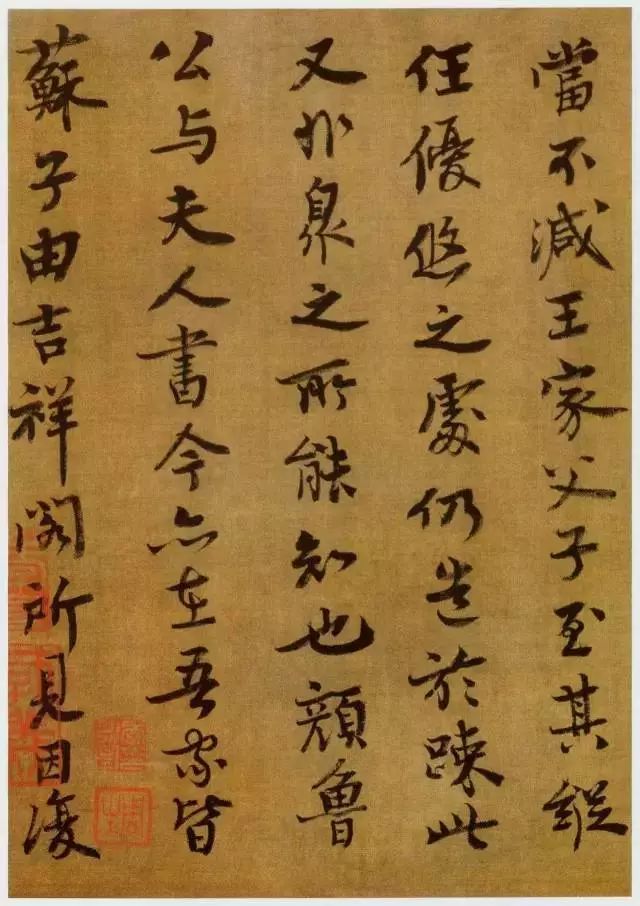 當不減王家父子至其縱
任優悠之處仍造於疎此
又非衆之所能知也顔魯
公与夫人書今亦在吾家皆
蘇子由吉祥閣所見因復